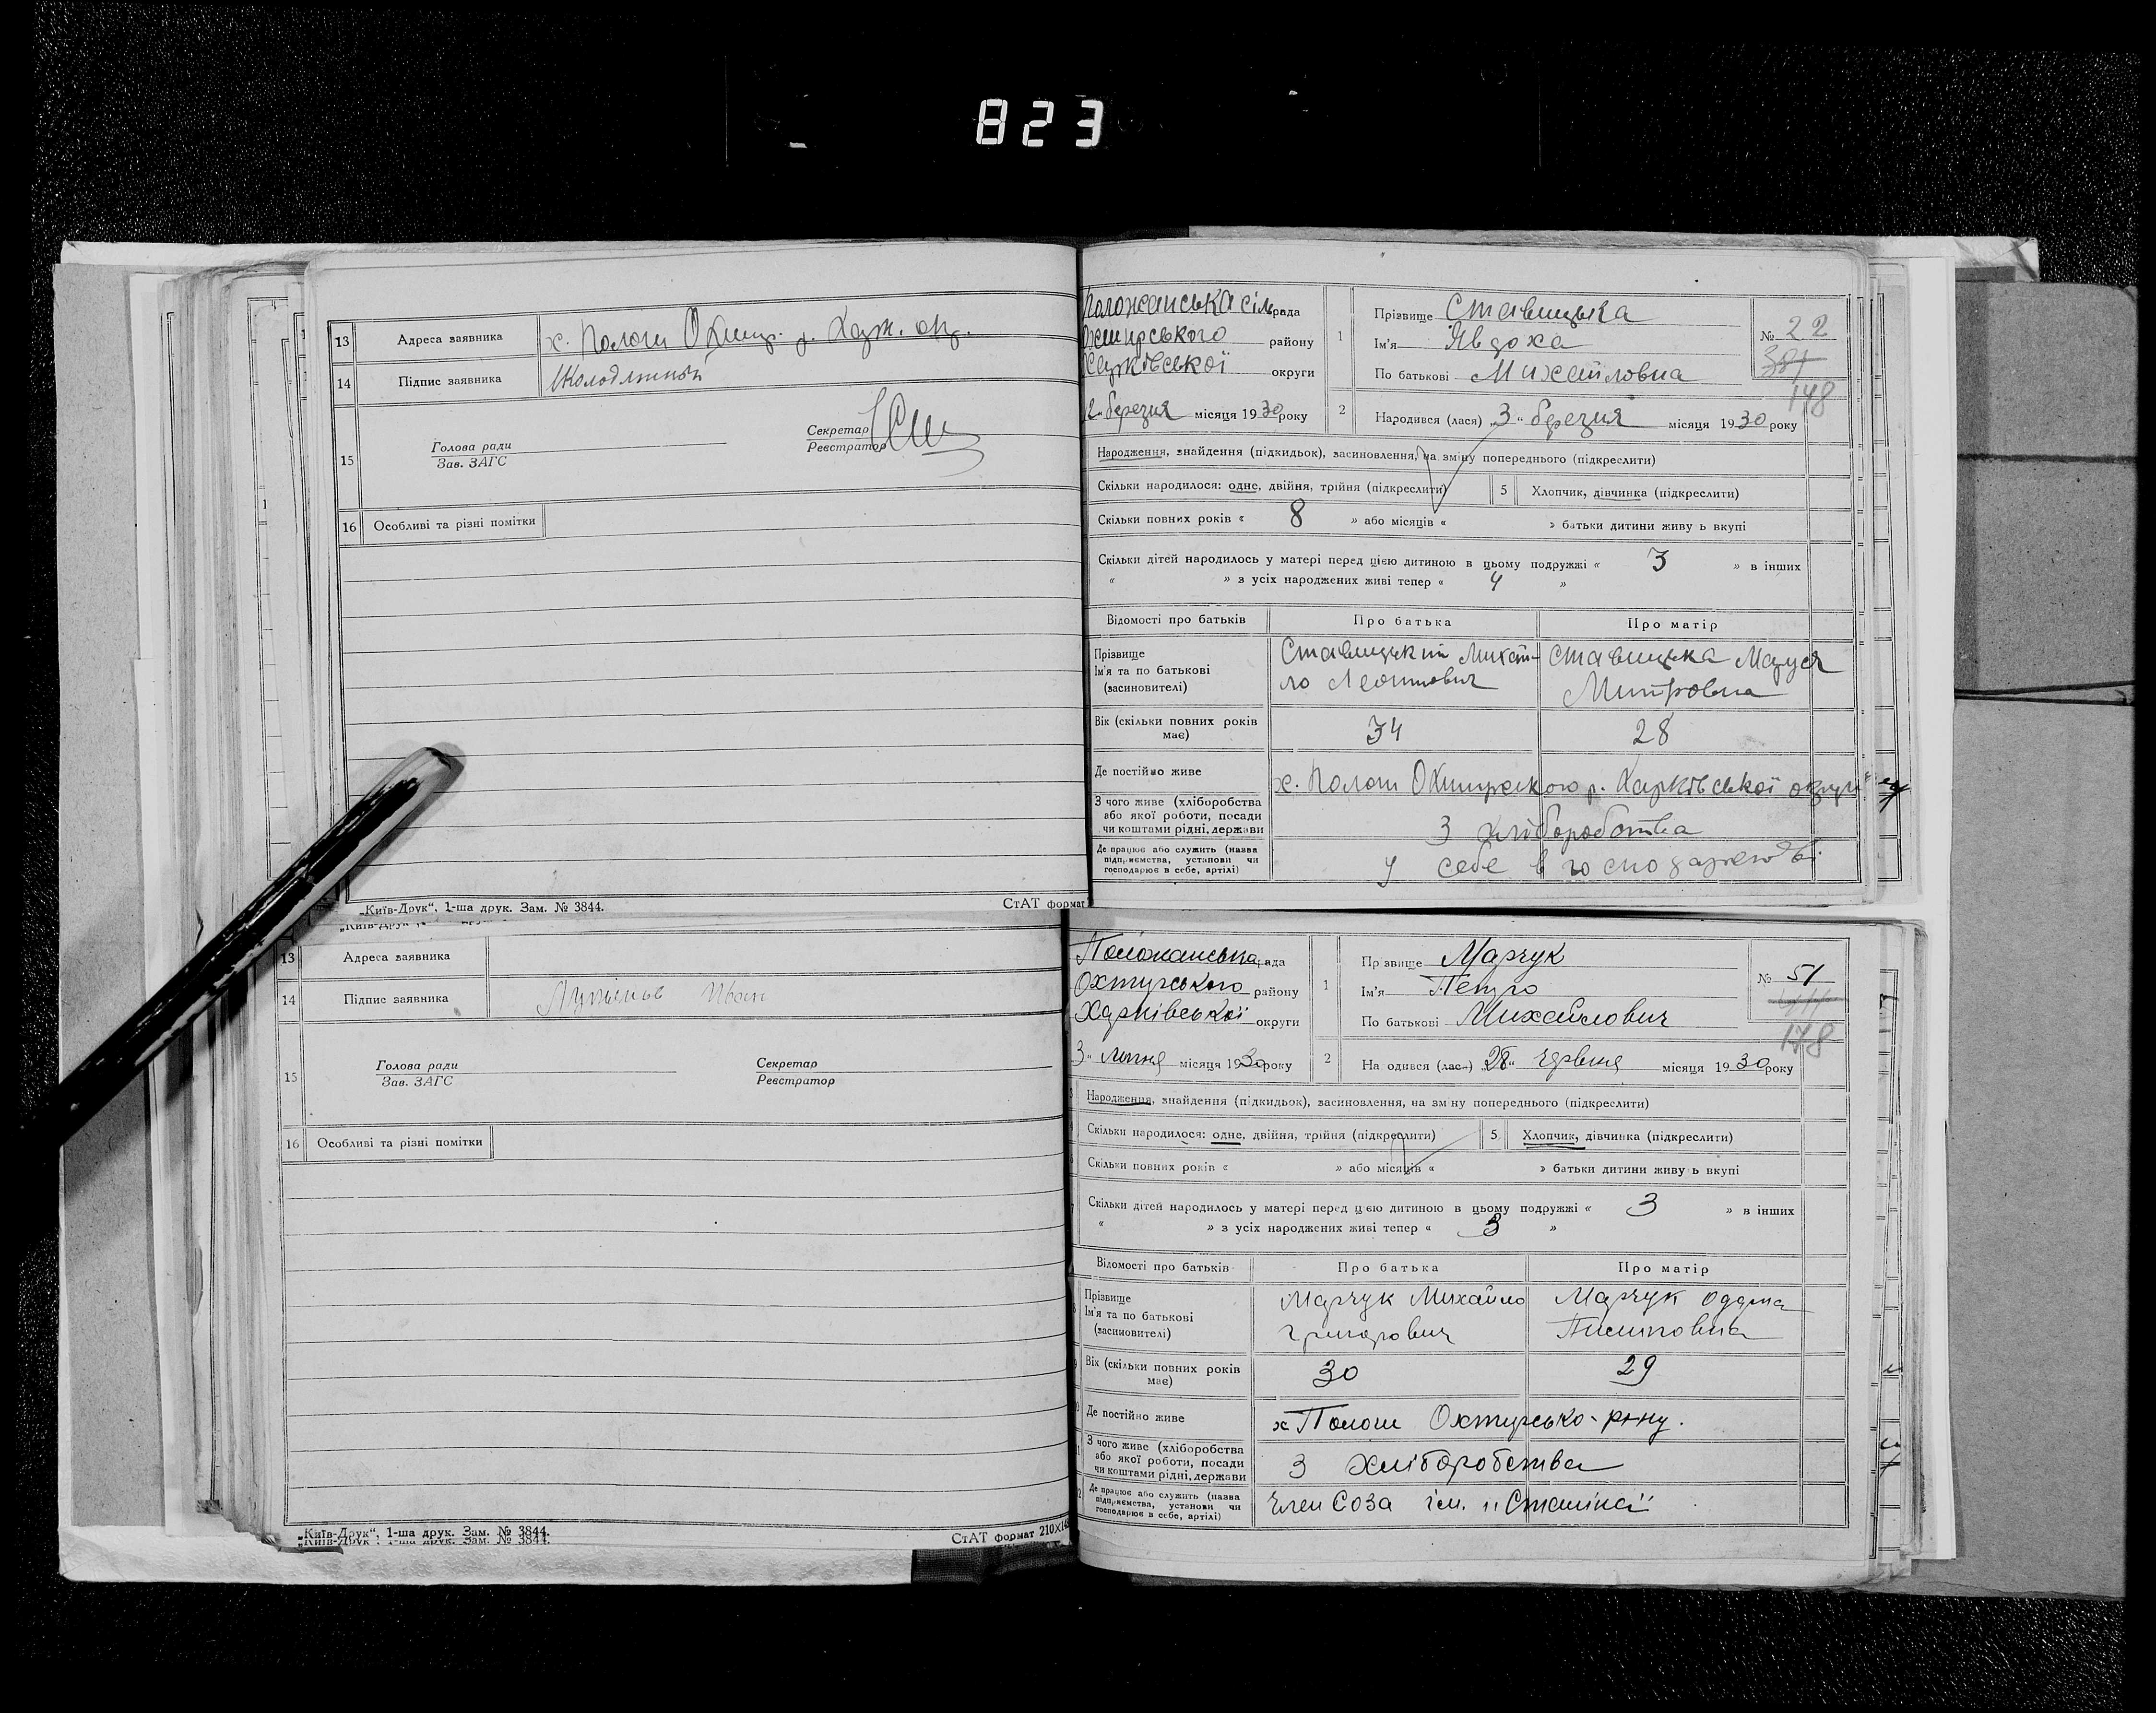 823
13 Адреса заявника х. Полози Охтир. р. Харк. окр.
14 Підпис заявника
15 Голова ради
Зав. ЗАГС
Секретар
Реєстратор
16 Особливі та різні помітки
„Київ-Друк“, 1-ша друк. Зам. № 3844.
СтАТ формат
Положанська сільрада
Охтирського району
Харківської округи
березня місяця 1930 року
1 Прізвище Ставицька
Ім'я Явдоха
По батькові Михайловна
№ 22
381
148
2 Народився (лася) „3“ березня місяця 1930 року
Народження, знайдення (підкидьок), засиновлення, на зміну попереднього (підкреслити)
Скільки народилося: одне, двійня, трійня (підкреслити) 5 Хлопчик, дівчинка (підкреслити)
Скільки повних років « 8 » або місяців « » батьки дитини живу ь вкупі
Скільки дітей народилось у матері перед цією дитиною в цьому подружжі « 3 » в інших
« » з усіх народжених живі тепер « 4 »
Відомості про батьків Про батька Про матір
Прізвище
Ім'я та по батькові
(засиновителі)
Ставицький Михай-
ло Леонтович
Ставицька Маруся
Митровна
Вік (скільки повних років
має) 34 28
Де постійно живе х. Полози Охтирського р. Харківської округи
З чого живе (хліборобства
або якої роботи, посади
чи коштами рідні, держави
З хліборобства
Де працює або служить (назва
підприємства, установи чи
господарює в себе, артілі)
у себе в господарстві
13 Адреса заявника
14 Підпис заявника Іван
15 Голова ради
Зав. ЗАГС
Секретар
Реєстратор
16 Особливі та різні помітки
„Київ-Друк“, 1-ша друк. Зам. № 3844.
СтАТ формат 210×1
Положанська рада
Охтирського району
Харківської округи
3“ липня місяця 1930 року
1 Пр звище Марчук
Ім'я Петро
По батькові Михайлович
№ 51
178
2 На одився (лася) „28“ червня місяця 1930 року
Народження, знайдення (підкидьок), засиновлення, на зміну попереднього (підкреслити)
Скільки народилося: одне, двійня, трійня (підкреслити) 5 Хлопчик, дівчинка (підкреслити)
Скільки повних років « » або місяців « » батьки дитини живу ь вкупі
Скільки дітей народилось у матері перед цією дитиною в цьому подружжі « 3 » в інших
« » з усіх народжених живі тепер « 3 »
Відомості про батьків Про батька Про матір
Прізвище
Ім'я та по батькові
(засиновителі)
Марчук Михайло
Григорович
Марчук Одарка
Вік (скільки повних років
має) 30 29
Де постійно живе х Полози Охтирсько- р-ну.
З чого живе (хліборобства
або якої роботи, посади
чи коштами рідні, держави
З хліборобства
Де працює або служить (назва
підприємства, установи чи
господарює в себе, артілі)
Член Соза ім. „Сталіна“